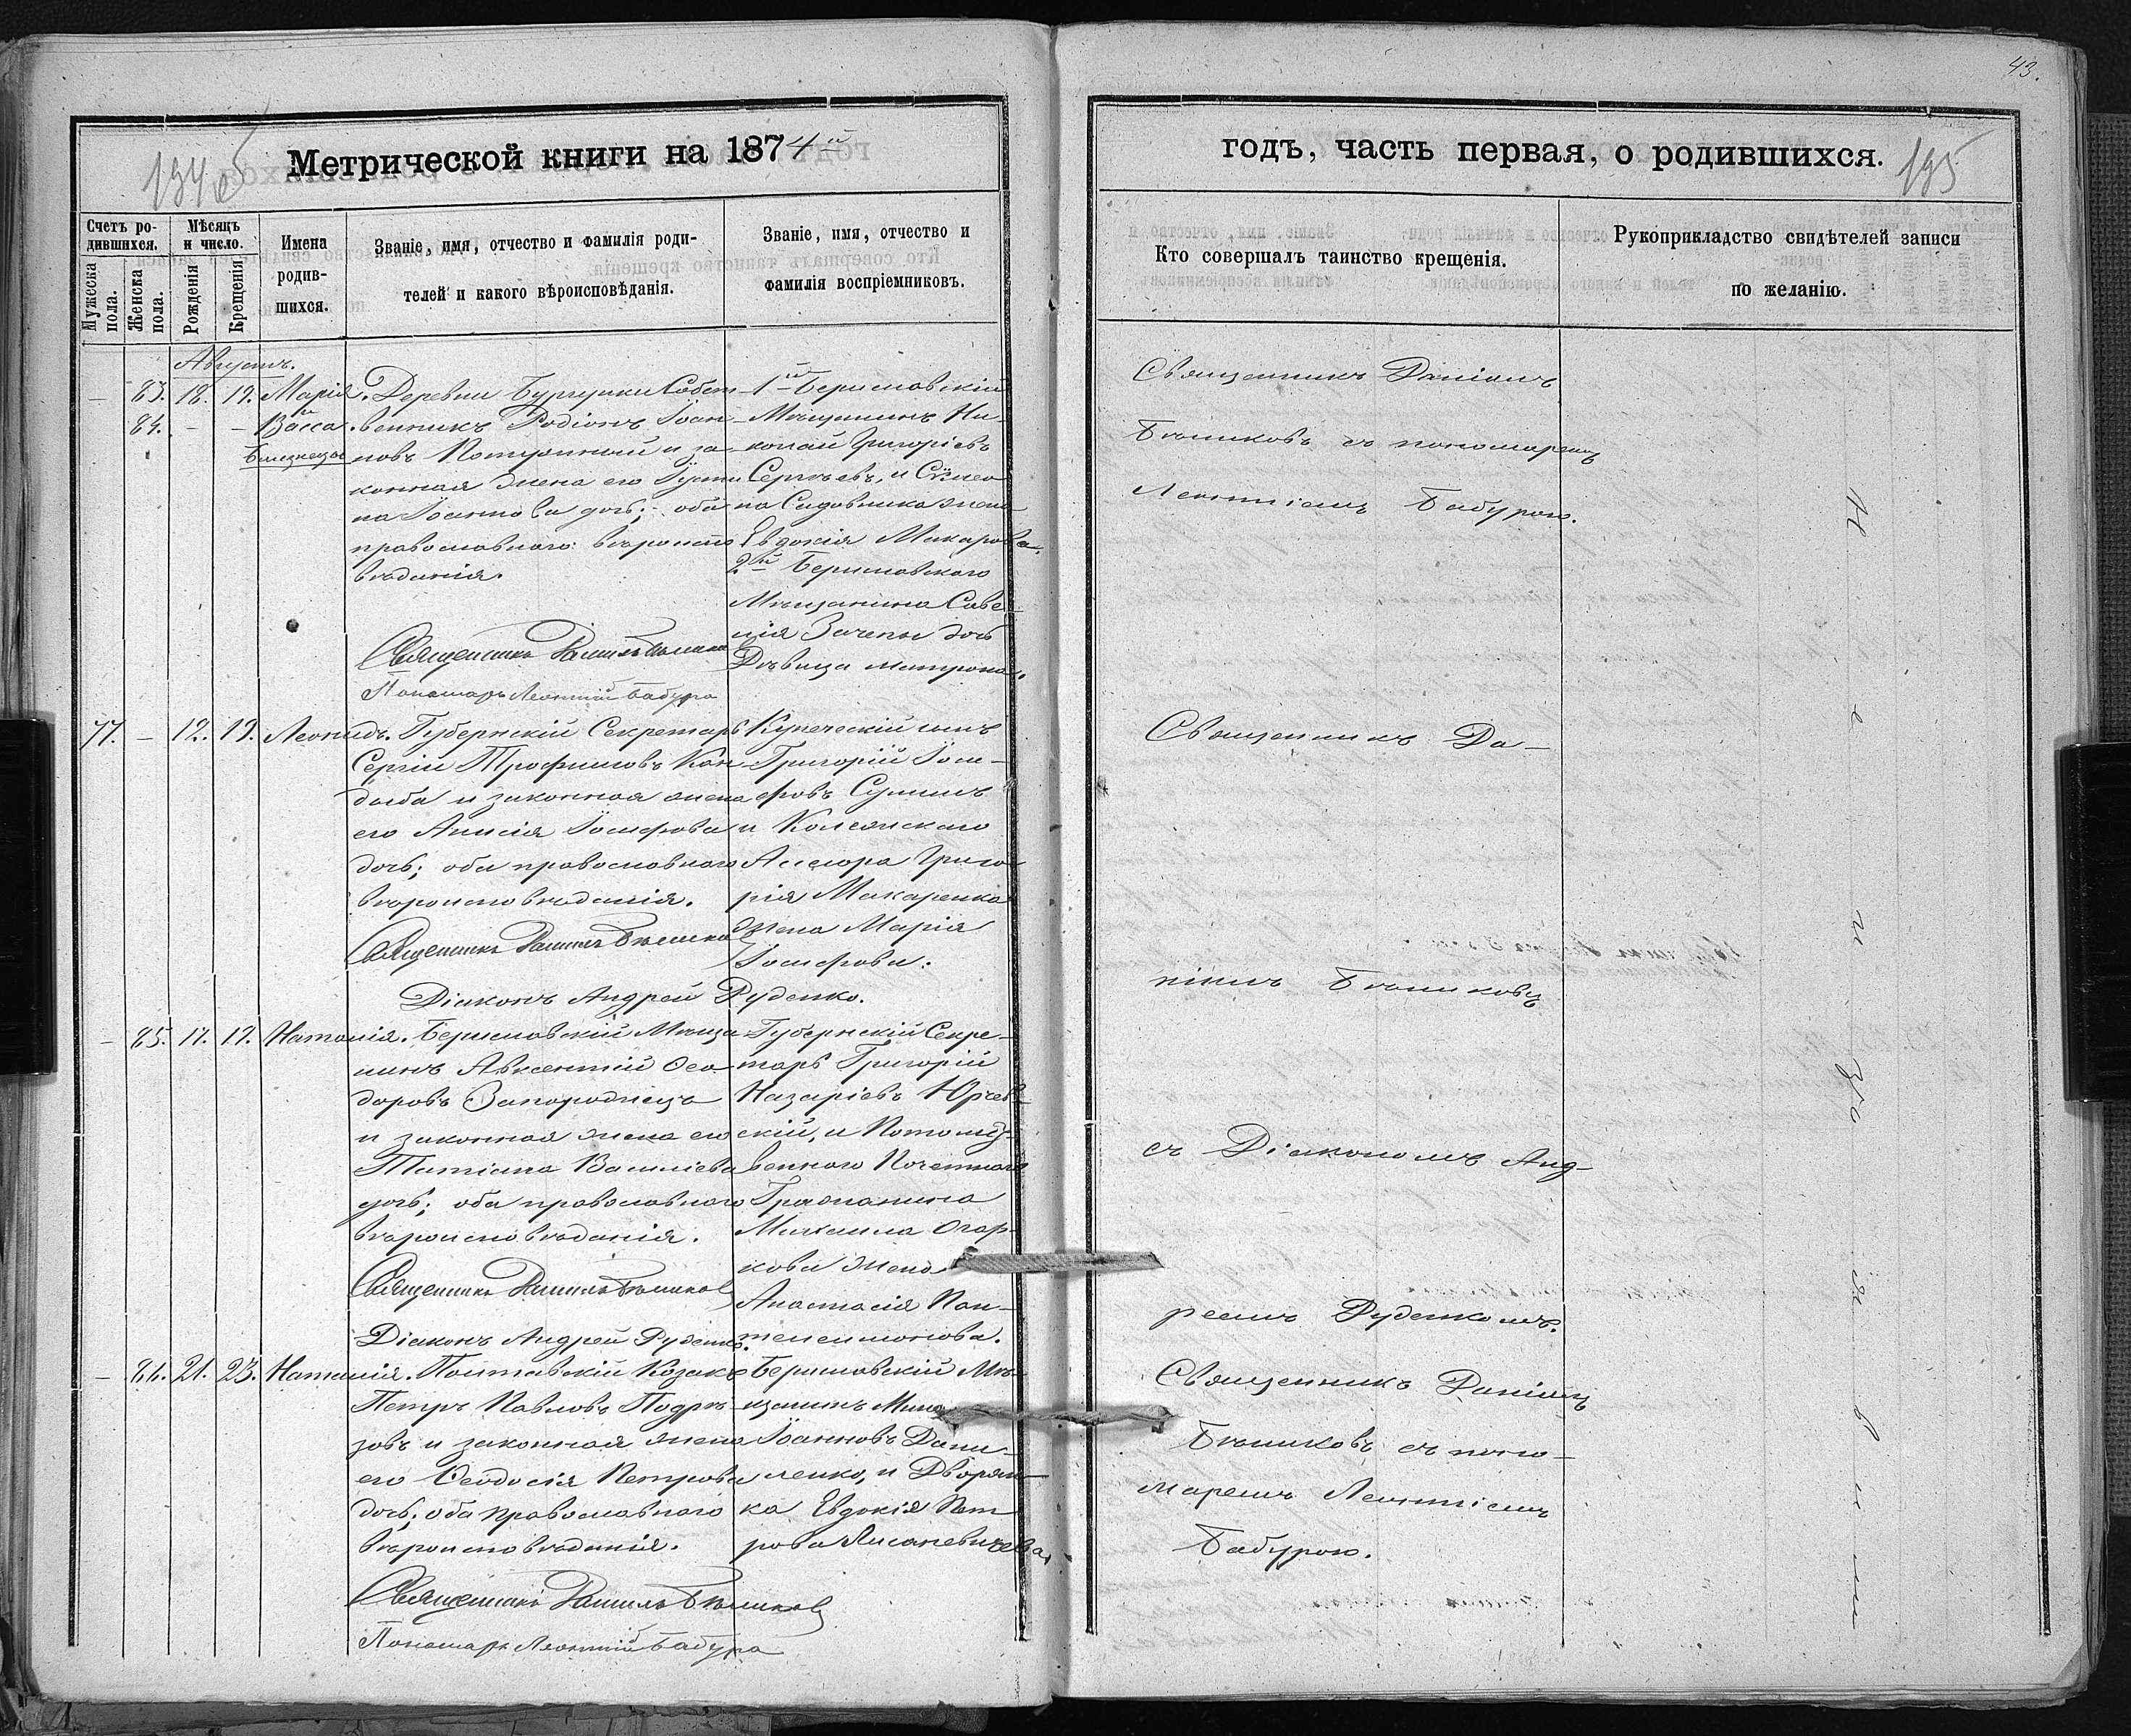 43.
Метрической книги на 1874й
195
годъ, часть первая, о родившихся.
195
Счетъ родившихся.
Мужеска пола.
Женска пола.
Мѣсяцъ и число.
Рожденія
Крещенія
Имена родившихся.
Званіе, имя, отчество и фамилія родителей и какого вѣроисповѣданія.
Званіе, имя, отчество и фамилія воспріемниковъ.
Кто совершалъ таинство крещенія.
Рукоприкладство свидѣтелей записи по желанію.
Августъ.
— 83. 18. 19. Марія
84. — — и Васса.
близнецы
Деревни Бургунки Собст
венникъ Родіонъ Іоан-
новъ и за-
конная жена его Іусти
на Іоаннова дочь; оба
православнаго вѣроиспо
вѣданія.
Священникъ Даніилъ Бѣликовъ
Пономарь Леонтій Бабура
1й Бериславскій
Мѣщанинъ Ни-
колай Григоріевъ
Сергѣевъ, и Сѵмео
на Садовника жена
Евдокія Макарова.
2й Бериславскаго
Мѣщанина Саве
лія Зачепы дочь
Дѣвица Матрона.
Священникъ Даніилъ
Бѣликовъ съ пономаремъ
Леонтіемъ Бабурою.
77. — 12. 19. Леонидъ.
Губернскій Секретарь
Сергій Трофимовъ Кан-
дыба и законная жена
его Анисія Іосифова
дочь; оба православнаго
вѣроисповѣданія.
Священникъ Даніилъ Бѣликовъ
Діаконъ Андрей Руденко.
Купеческій сынъ
Григорій Іоси-
фовъ
и Колежскаго
Асесора Григо
рія Макаренка
жена Марія
Іосифова.
Священникъ Да-
ніилъ Бѣликовъ
съ Діакономъ Анд-
реемъ Руденкомъ.
— 85. 17. 19. Наталія.
Бериславскій Мѣща
нинъ Авксентій Ѳео-
доровъ Запорожецъ
и законная жена его
Татіана Василіева
дочь; оба православнаго
вѣроисповѣданія.
Священникъ Даніилъ Бѣликовъ
Діаконъ Андрей Руденко.
Губернскій Секре-
тарь Григорій
Назаріевъ Юрьев-
скій, и Потомс-
твеннаго Почетнаго
Гражданина
Михаила Огар-
кова жена
Анастасія Пан-
телеимонова.
— 86. 21. 23. Наталія.
Полтавскій Козакъ
Петръ Павловъ Подрѣ-
зовъ и законная жена
его Ѳеодосія Петрова
дочь; оба православнаго
вѣроисповѣданія.
Священникъ Даніилъ Бѣликовъ
Пономарь Леонтій Бабура
Бериславскій Мѣ-
щанинъ
Іоанновъ Дани-
ленко, и Дворян-
ка Евдокія Пет
рова Лисаневичева.
Священникъ Даніилъ
Бѣликовъ съ поно-
маремъ Леонтіемъ
Бабурою.